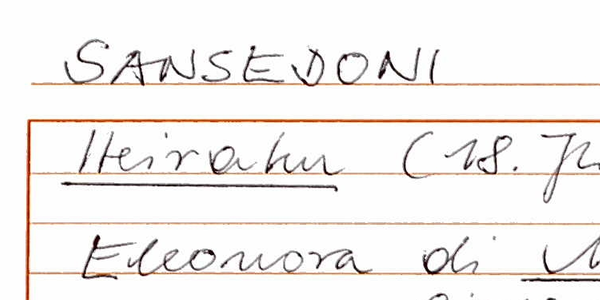 SANSEDONI
Heiraten (18. Jh
Eleonora di